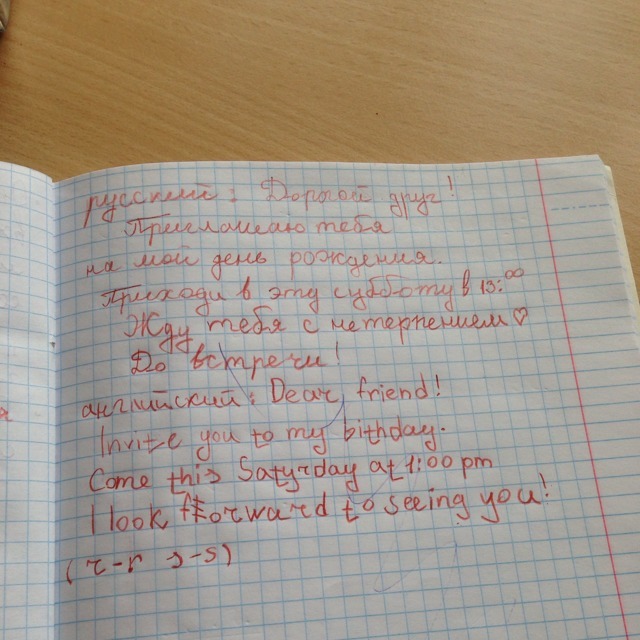 русский: Дорогой друг!
Приглашаю тебя
на мой день рождения.
Приходи в эту субботу в 13:00
Жду тебя с нетерпением ♡
До встречи!
английский: Dear, friend!
Invite you to my bithday.
Come this Saturday at 1:00 pm
I look forward to seeing you!
(r-r s-s)